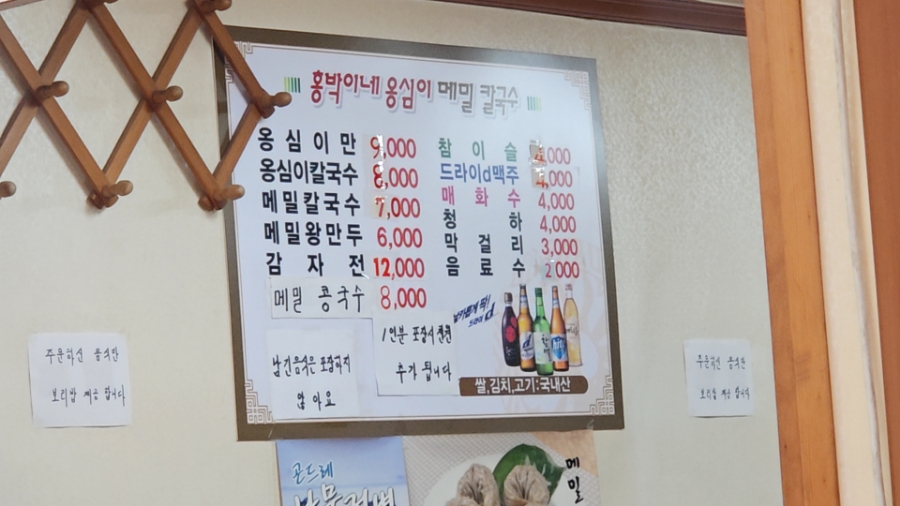 홍박이네 옹심이 메밀 칼국수
옹심이만 9,000
옹심이칼국수 8,000
메밀칼국수 7,000
메밀왕만두 6,000
감자전 12,000
메밀 콩국수 8,000
참이슬 4,000
드라이d맥주 4,000
매화수 4,000
청하 4,000
막걸리 3,000
음료수 2000
남긴음식은 포장되지
않아요
1인분 포장시 천원
추가 됩니다
쌀,김치,고기:국내산
주문하신 음식만
보리밥 제공 합니다
주문하신 음식만
보리밥 제공 합니다
곤드레
메밀